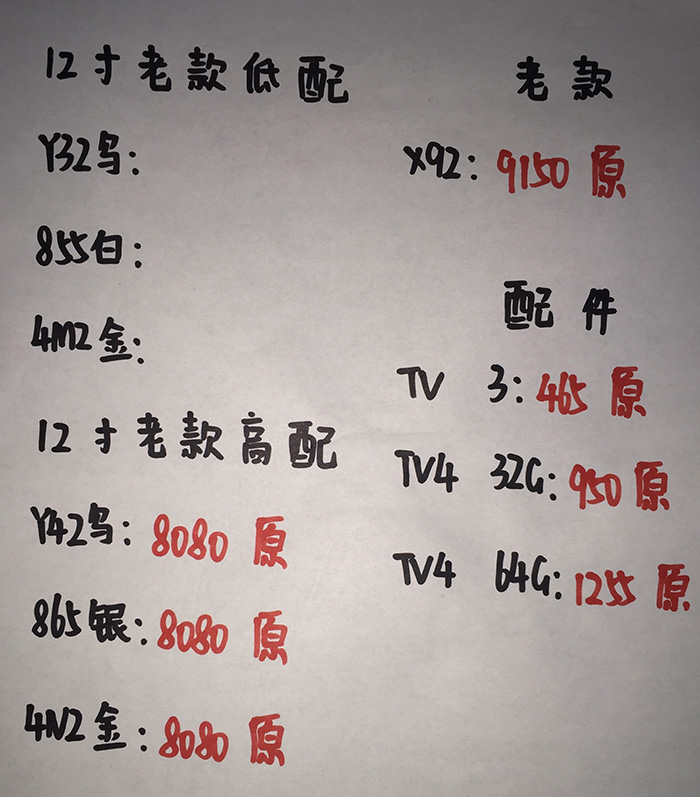 12寸老款低配
Y32鸟:
855白:
4M2金:
12寸老款高配
Y42鸟: 8080 原
865银: 8080 原
4N2金: 8080 原
老款
X92: 9150 原
配件
TV 3: 465 原
TV4 32G: 950 原
TV4 64G: 1255 原